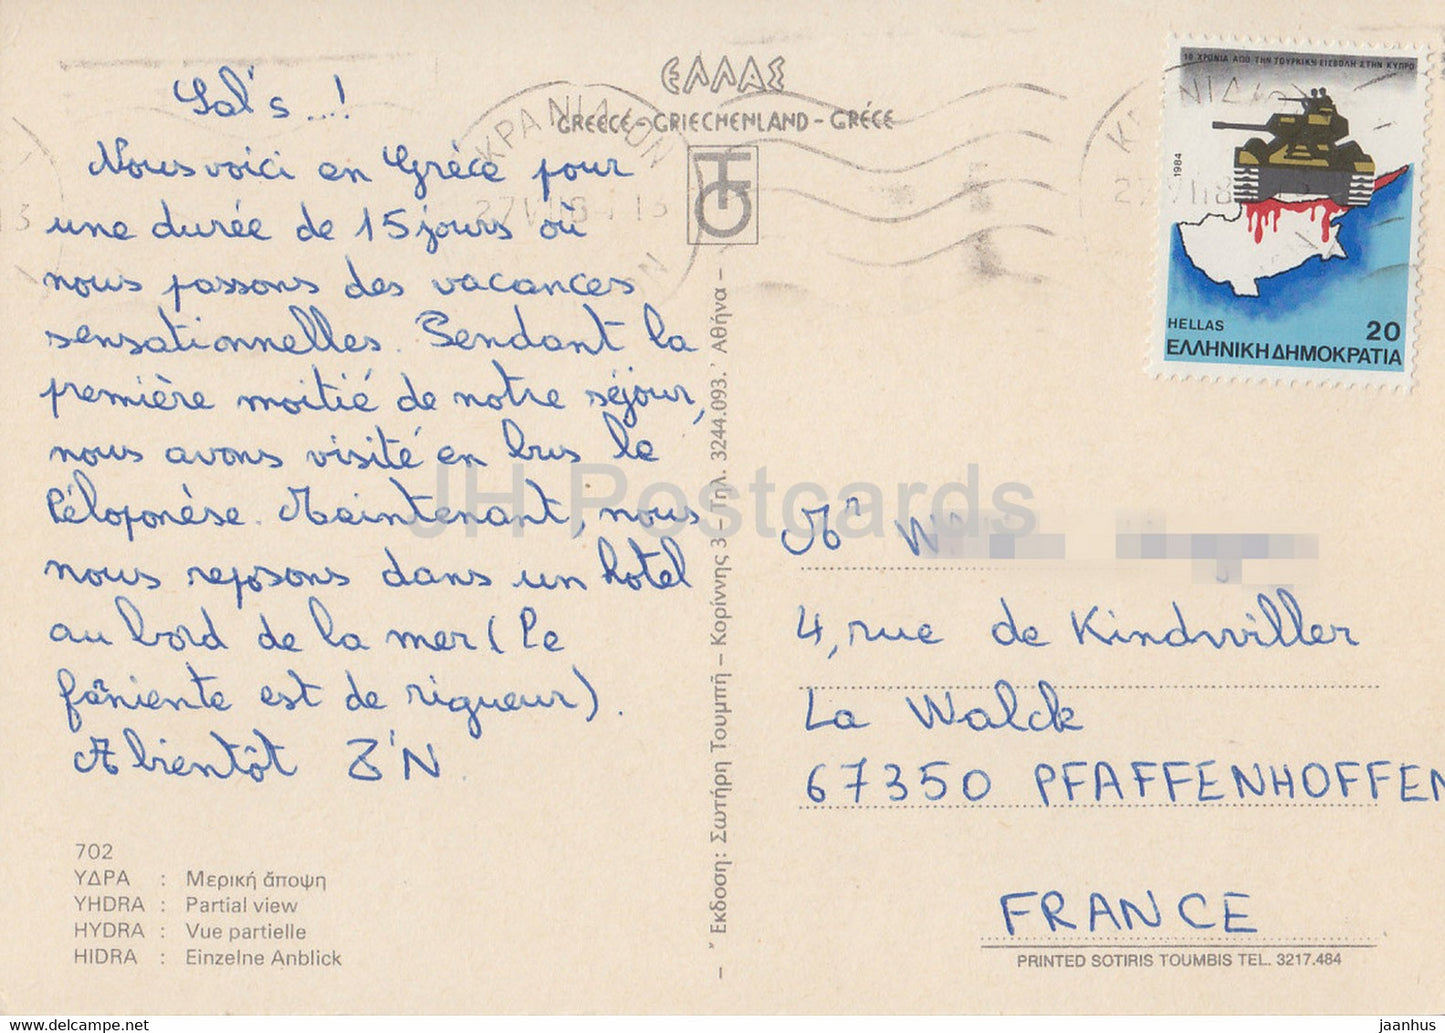 Sal's ...!
Nous voici en Grèce pour
une durée de 15 jours où
nous passons des vacances
sensationnelles. Pendant la
première moitié de notre séjour,
nous avons visité en bus le
Péloponèse. Maintenant, nous
nous reposons dans un hotel
au bord de la mer (Le
farniente est de rigueur).
A bientôt
702
ΥΔΡΑ : Μερική ἄποψη
YHDRA : Partial view
HYDRA : Vue partielle
HIDRA : Einzelne Anblick
ΕΛΛΑΣ
GREECE - GRIECHENLAND - GRÉCE
ΚΡΑΝΙΔΙΟΝ
Ἔκδοση: Σωτήρη Τουμπῆ – Κορίννης 3 – Τηλ. 3244.093. Ἀθήνα –
10 ΧΡΟΝΙΑ ΑΠΟ ΤΗΝ ΤΟΥΡΚΙΚΗ ΕΙΣΒΟΛΗ ΣΤΗΝ ΚΥΠΡΟ
1984
HELLAS 20
ΕΛΛΗΝΙΚΗ ΔΗΜΟΚΡΑΤΙΑ
Mr W
4, rue de Kindwiller
La Walck
67350 PFAFFENHOFFEN
FRANCE
PRINTED SOTIRIS TOUMBIS TEL. 3217.484
JH Postcards
https://www.hippostcard.com/store/jh-postcards
jaanhus